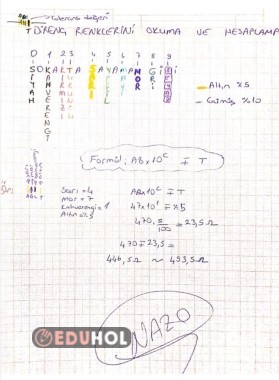 Tolerans değeri
DİRENÇ RENKLERİNİ OKUMA VE HESAPLAMA
0 1 2 3 4 5 6 7 8 9
SİYAH
KAHVERENGİ
KIRMIZI
TURUNCU
SARI
YEŞİL
MAVİ
MOR
GRİ
BEYAZ
Altın %5
Gümüş %10
Formül: AB x 10ᶜ ∓ T
Sarı = 4
Mor = 7
Kahverengi = 1
Altın = %5
AB x 10ᶜ ∓ T
47 x 10¹ ∓ %5
470 . 5/100 = 23,5 Ω
470 ∓ 23,5 =
446,5 Ω ~ 493,5 Ω
NAZO
EDUHOL